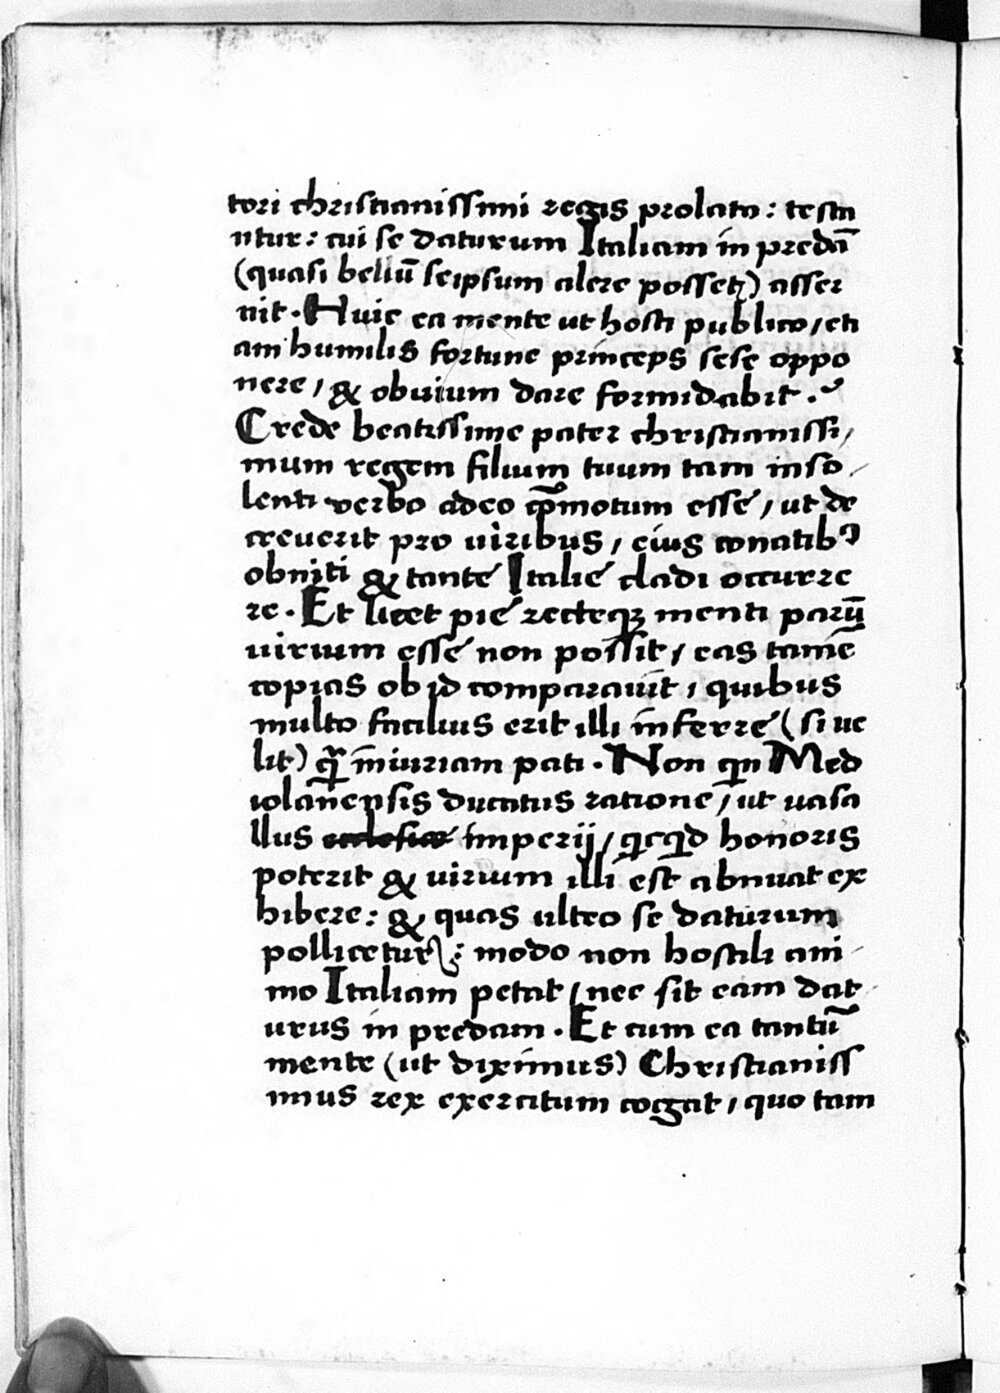 tori christianissimi regis prolato: testa
ntur: cui se daturum Italiam in predā
(quasi bellū seipsum alere posset) asser
uit. Huic ea mente ut hosti publico, eti
am humilis fortune princeps sese oppo
nere, & obuium dare formidabit.
Crede beatissime pater christianissi,
mum regem filium tuum tam inso
lenti verbo adeo ꝓmotum esse, ut de
creuerit pro uiribus, eius conatibꝰ
obniti & tante Italie cladi occurre
re. Et licet pie recteqꝫ menti parū
uirium esse non possit, eas tamē
copias ob id comparauit, quibus
multo facilius erit illi inferre (si ue
lit) q̄ iniuriam pati. Non qn Med
iolanensis ducatus ratione, ut uasa
llus ecclesiae imperij, qcqd honoris
poterit & uirium illi est abnuat ex
hibere: & quas ultro se daturum
pollicetur: modo non hostili ani
mo Italiam petat, nec sit eam dat
urus in predam. Et cum ea tantū
mente (ut diximus) Christianiss
imus rex exercitum cogat, quo tam